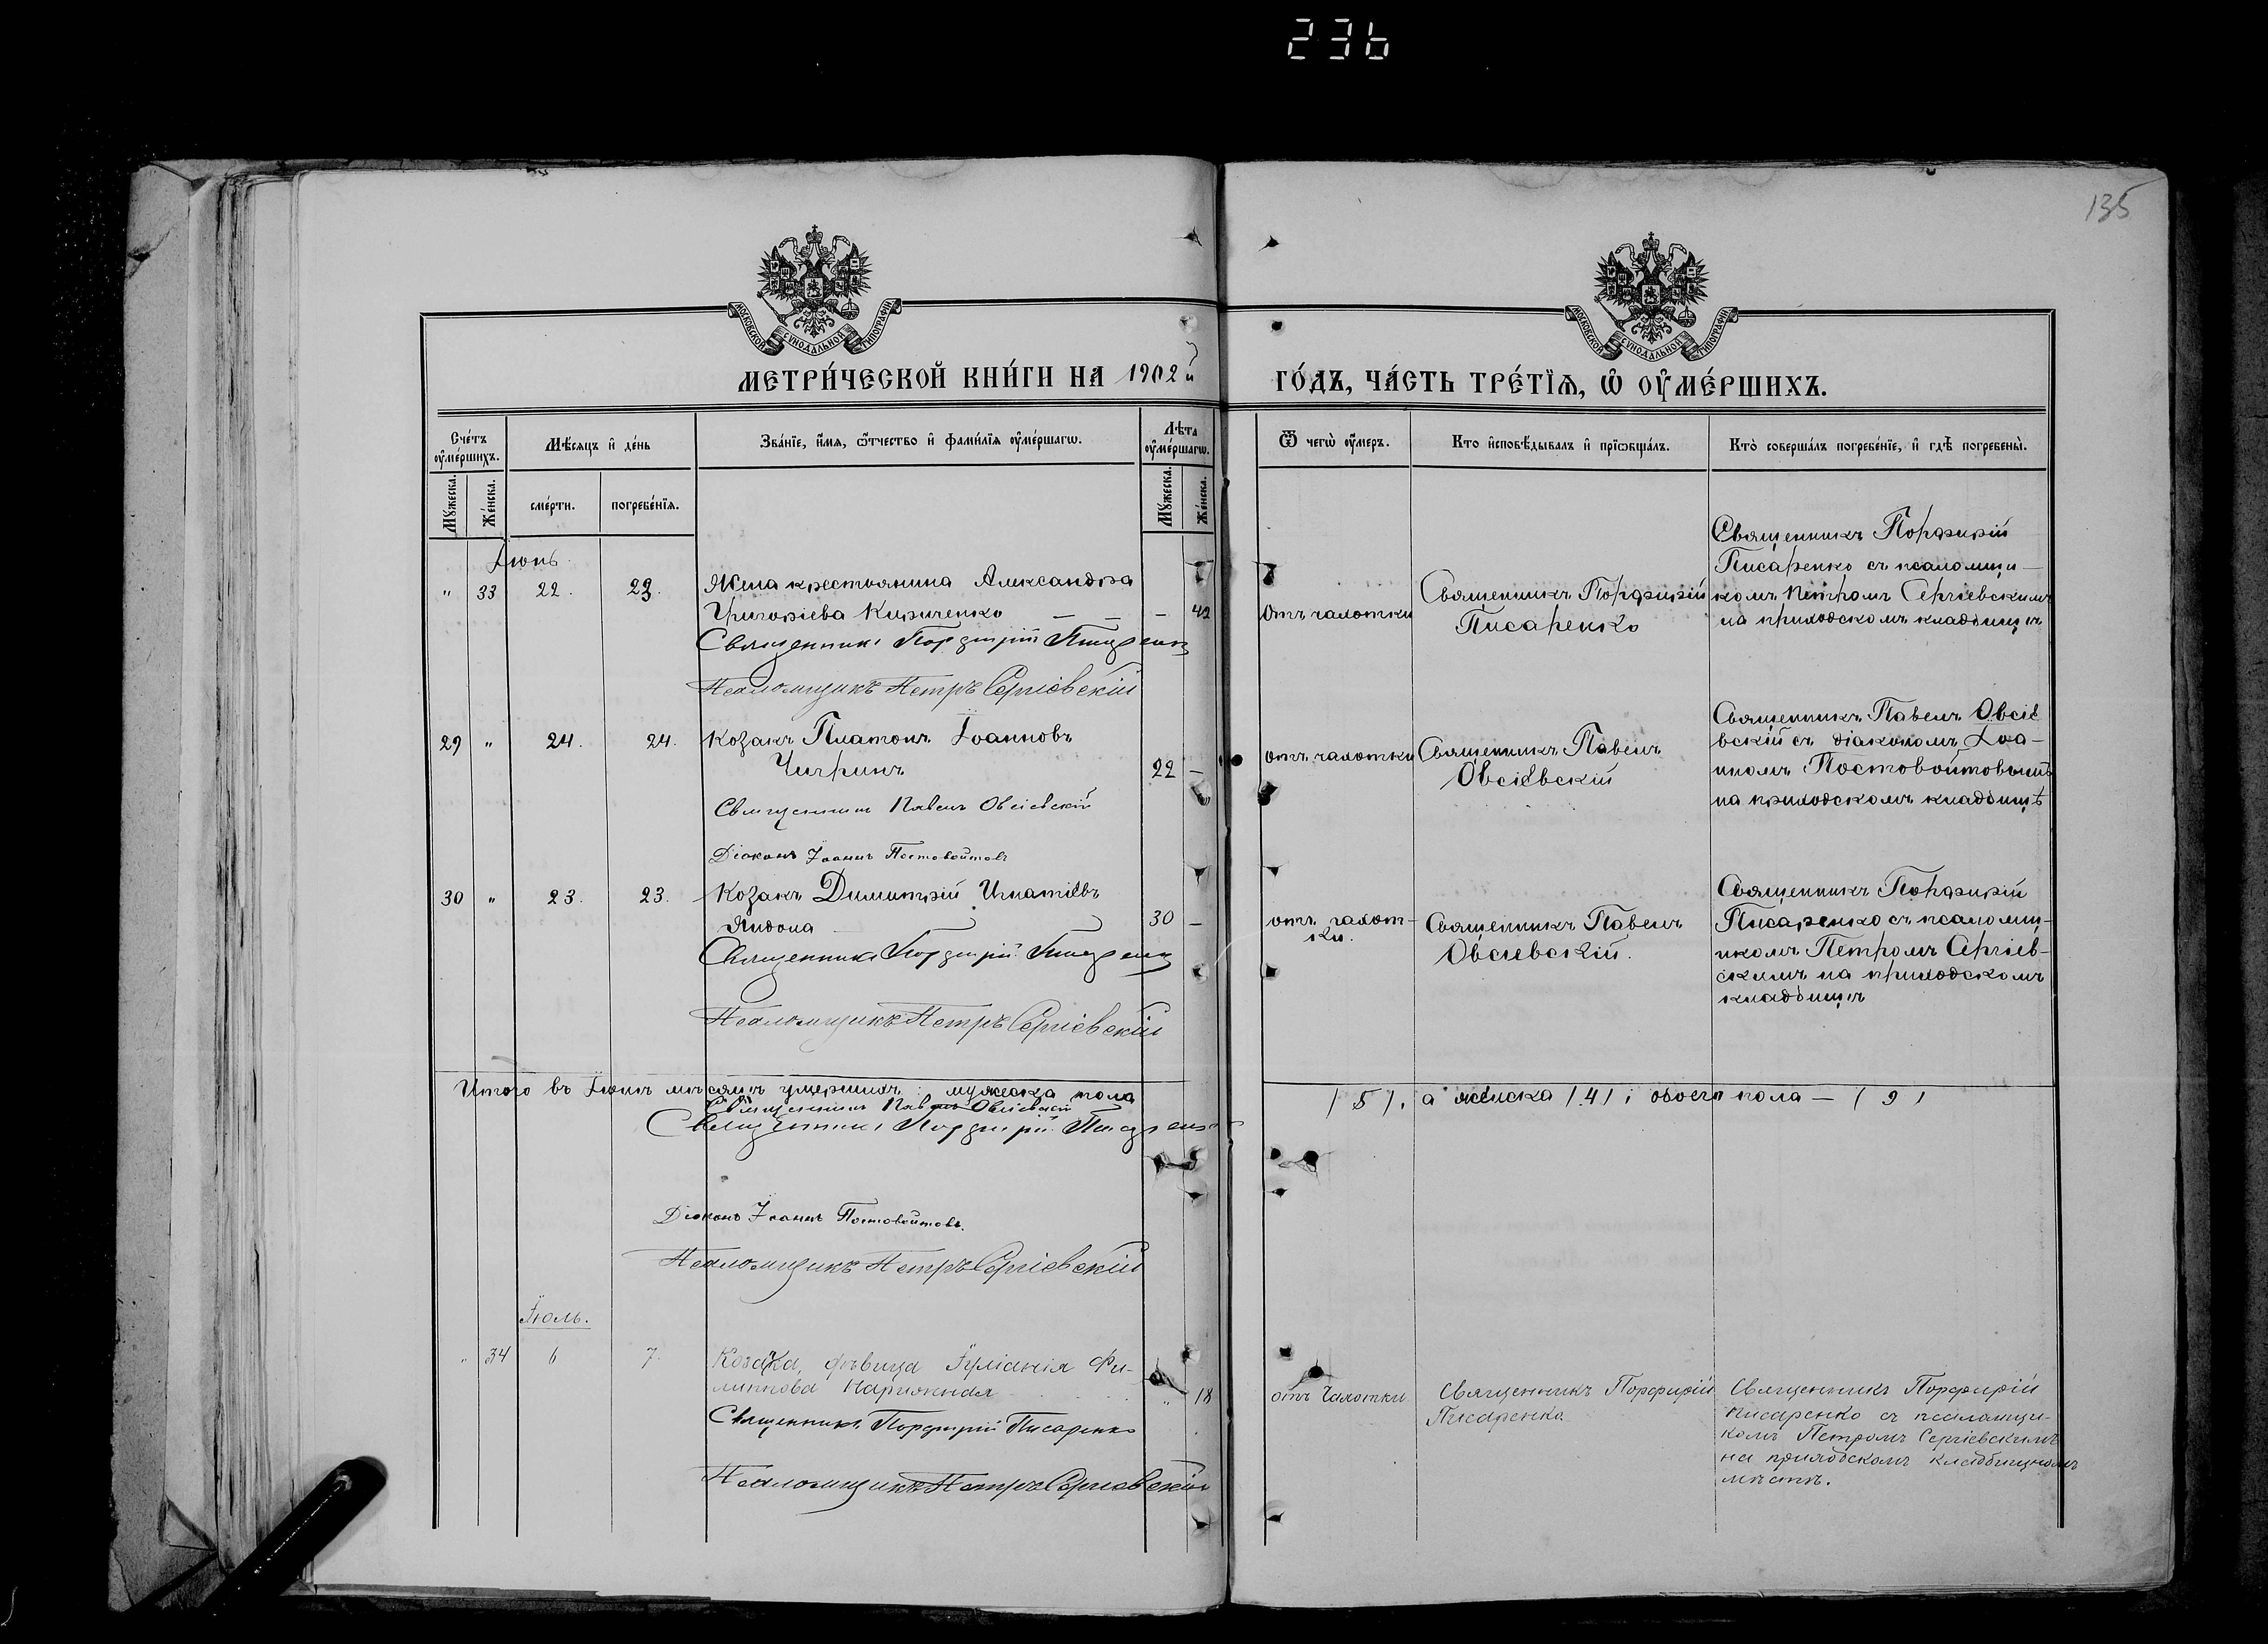 236
135
МОСКОВСКОЙ СѴНОДАЛЬНОЙ ТИПОГРАФІИ
МОСКОВСКОЙ СѴНОДАЛЬНОЙ ТИПОГРАФІИ
МЕТРИ́ЧЕСКОЙ КНИ́ГИ НА 1902й
ГО́ДЪ, ЧА́СТЬ ТРЕ́ТЇѦ, Ѡ҆ ОУ҆МЕ́РШИХЪ.
Сче́тъ оу҆ме́ршихъ.
Мѣ́сяцъ и҆ де́нь
Зва́нїе, и҆́мѧ, ѻ҆́тчество и҆ фами́лїѧ оу҆ме́ршагѡ.
Лѣ́та оу҆ме́ршагѡ.
Ѿ чегѡ̀ оу҆́меръ.
Кто̀ и҆сповѣ́дывалъ и҆ прїѡбща́лъ.
Кто̀ соверша́лъ погребе́нїе, и҆ гдѣ̀ погребены̀.
Мꙋ́жеска.
Же́нска.
сме́рти.
погребе́нїѧ.
Мꙋ́жеска.
Же́нска.
Іюнь.
" 33 22. 23. Жена крестьянина Александра
Григоріева Кириченко — — — 42
Священникъ Порфирій Писаренко
Псаломщикъ Петръ Сергіевскій
отъ чахотки
Священникъ Порфирій
Писаренко
Священникъ Порфирій
Писаренко съ псаломщи—
комъ Петромъ Сергіевскимъ
на приходскомъ кладбищѣ
29 " 24. 24. Козакъ Платонъ Іоанновъ
Чигринъ 22 —
Священникъ Павелъ Овсіевскій
Діаконъ Іоаннъ Постовойтовъ
отъ чахотки
Священникъ Павелъ
Овсіевскій
Священникъ Павелъ Овсіе
вскій съ діакономъ Іоа—
нномъ Постовойтовымъ
на приходскомъ кладбищѣ
30 " 23. 23. Козакъ Димитрій Игнатіевъ
30 —
Священникъ Порфирій Писаренко
Псаломщикъ Петръ Сергіевскій
отъ чахот-
ки.
Священникъ Павелъ
Овсіевскій.
Священникъ Порфирій
Писаренко съ псаломщи-
комъ Петромъ Сергіев-
скимъ на приходскомъ
кладбищѣ
Итого въ Іюнѣ мѣсяцѣ умершихъ: мужеска пола
/ 5 /, а женска / 4 / ; обоего пола — / 9 /
Священникъ Павелъ Овсіевскій
Священникъ Порфирій Писаренко
Діаконъ Іоаннъ Постовойтовъ.
Псаломщикъ Петръ Сергіевскій
Іюль.
" 34 6 7. Козачка, дѣвица Іуліанія Фи-
липпова Нарижная " 18
Священникъ Порфирій Писаренко
Псаломщикъ Петръ Сергіевскій
отъ чахотки
Священникъ Порфирій
Писаренко
Священникъ Порфирій
Писаренко съ псаломщи-
комъ Петромъ Сергіевскимъ
на приходскомъ кладбищномъ
мѣстѣ.